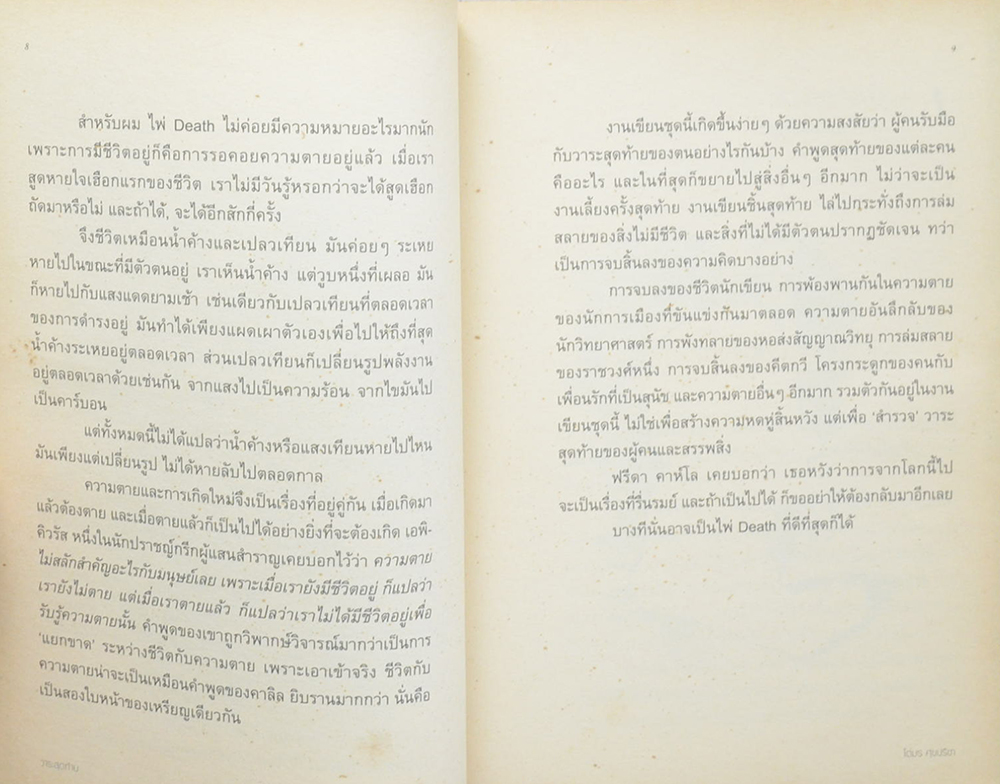 ๘
สำหรับผม ไพ่ Death ไม่ค่อยมีความหมายอะไรมากนัก
เพราะการมีชีวิตอยู่ก็คือการรอคอยความตายอยู่แล้ว เมื่อเรา
สูดหายใจเฮือกแรกของชีวิต เราไม่มีวันรู้หรอกว่าจะได้สูดเฮือก
ถัดมาหรือไม่ และถ้าได้, จะได้อีกสักกี่ครั้ง
จึงชีวิตเหมือนน้ำค้างและเปลวเทียน มันค่อยๆ ระเหย
หายไปในขณะที่มีตัวตนอยู่ เราเห็นน้ำค้าง แต่วูบหนึ่งที่เผลอ มัน
ก็หายไปกับแสงแดดยามเช้า เช่นเดียวกับเปลวเทียนที่ตลอดเวลา
ของการดำรงอยู่ มันทำได้เพียงแผดเผาตัวเองเพื่อไปให้ถึงที่สุด
น้ำค้างระเหยอยู่ตลอดเวลา ส่วนเปลวเทียนก็เปลี่ยนรูปพลังงาน
อยู่ตลอดเวลาด้วยเช่นกัน จากแสงไปเป็นความร้อน จากไขมันไป
เป็นคาร์บอน
แต่ทั้งหมดนี้ไม่ได้แปลว่าน้ำค้างหรือแสงเทียนหายไปไหน
มันเพียงแต่เปลี่ยนรูป ไม่ได้หายลับไปตลอดกาล
ความตายและการเกิดใหม่จึงเป็นเรื่องที่อยู่คู่กัน เมื่อเกิดมา
แล้วต้องตาย และเมื่อตายแล้วก็เป็นไปได้อย่างยิ่งที่จะต้องเกิด เอพิ-
คิวรัส หนึ่งในนักปราชญ์กรีกผู้แสนสำราญเคยบอกไว้ว่า ความตาย
ไม่สลักสำคัญอะไรกับมนุษย์เลย เพราะเมื่อเรายังมีชีวิตอยู่ ก็แปลว่า
เรายังไม่ตาย แต่เมื่อเราตายแล้ว ก็แปลว่าเราไม่ได้มีชีวิตอยู่เพื่อ
รับรู้ความตายนั้น คำพูดของเขาถูกวิพากษ์วิจารณ์มากว่าเป็นการ
'แยกขาด' ระหว่างชีวิตกับความตาย เพราะเอาเข้าจริง ชีวิตกับ
ความตายน่าจะเป็นเหมือนคำพูดของคาลิล ยิบรานมากกว่า นั่นคือ
เป็นสองใบหน้าของเหรียญเดียวกัน
วาระสุดท้าย
๙
งานเขียนชุดนี้เกิดขึ้นง่ายๆ ด้วยความสงสัยว่า ผู้คนรับมือ
กับวาระสุดท้ายของตนอย่างไรกันบ้าง คำพูดสุดท้ายของแต่ละคน
คืออะไร และในที่สุดก็ขยายไปสู่สิ่งอื่นๆ อีกมาก ไม่ว่าจะเป็น
งานเลี้ยงครั้งสุดท้าย งานเขียนชิ้นสุดท้าย ไล่ไปกระทั่งถึงการล่ม
สลายของสิ่งไม่มีชีวิต และสิ่งที่ไม่ได้มีตัวตนปรากฏชัดเจน ทว่า
เป็นการจบสิ้นลงของความคิดบางอย่าง
การจบลงของชีวิตนักเขียน การพ้องพานกันในความตาย
ของนักการเมืองที่ขันแข่งกันมาตลอด ความตายอันลึกลับของ
นักวิทยาศาสตร์ การพังทลายของหอส่งสัญญาณวิทยุ การล่มสลาย
ของราชวงศ์หนึ่ง การจบสิ้นลงของคีตกวี โครงกระดูกของคนกับ
เพื่อนรักที่เป็นสุนัข และความตายอื่นๆ อีกมาก รวมตัวกันอยู่ในงาน
เขียนชุดนี้ ไม่ใช่เพื่อสร้างความหดหู่สิ้นหวัง แต่เพื่อ 'สำรวจ' วาระ
สุดท้ายของผู้คนและสรรพสิ่ง
ฟรีดา คาห์โล เคยบอกว่า เธอหวังว่าการจากโลกนี้ไป
จะเป็นเรื่องที่รื่นรมย์ และถ้าเป็นไปได้ ก็ขออย่าให้ต้องกลับมาอีกเลย
บางทีนั่นอาจเป็นไพ่ Death ที่ดีที่สุดก็ได้
โตมร ศุขปรีชา